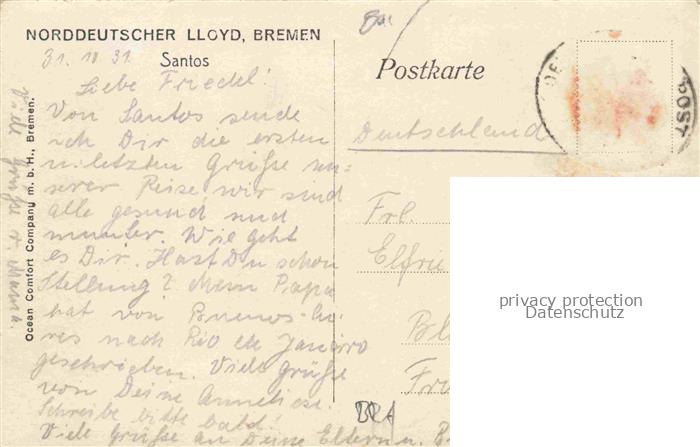 NORDDEUTSCHER LLOYD, BREMEN
Santos
31. 10. 31.
Liebe Friedel!
Von Santos sende
ich Dir die ersten
u. letzten Grüße un-
serer Reise wir sind
alle gesund und
munter. Wie geht
es Dir. Hast Du schon
Stellung? Mein Papa
hat von Buenos-Ai-
res nach Rio de Janeiro
geschrieben. Viele Grüße
von Deine Anneliese.
Schreibe bitte bald!
Viele Grüße an Deine Eltern u.
Viele Grüße v. Mama.
Ocean Comfort Company m. b. H., Bremen.
Postkarte
POST
Deutschland
Frl.
Elfrie
privacy protection
Datenschutz
BRA